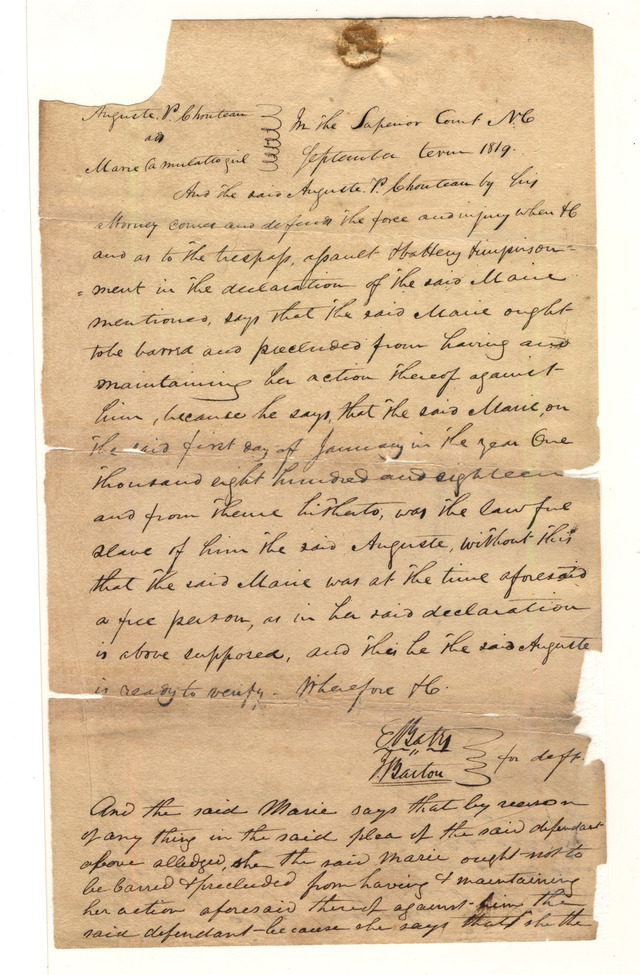 Auguste. P. Chouteau
ads
Marie (a mulatto girl
In the Superior Court N.C
September term 1819.
And the said Auguste P Chouteau by his
attorney comes and defends the force and injury when &C
and as to the trespass, assault & battery & imprison=
=ment in the declaration of the said Marie
mentioned, says that the said Marie ought
tobe barred and precluded from having and
maintaining her action thereof against
him, because he says, that the said Marie, on
the said first day of January in the year One
thousand eight hundred and eighteen
and from thence hitherto, was the lawful
slave of him the said Auguste, without this
that the said Marie was at the time aforesaid
a free person, as in her said declaration
is above supposed, and this he the said Auguste
is ready to verify. Wherefore &C.
E Bates
Barton
for deft.
And the said Marie says that by reason
of any thing in the said plea of the said defendant
above alledged, she the said Marie ought not to
be barred & precluded from having & maintaining
her action aforesaid thereof against him the
said defendant because she says that she the